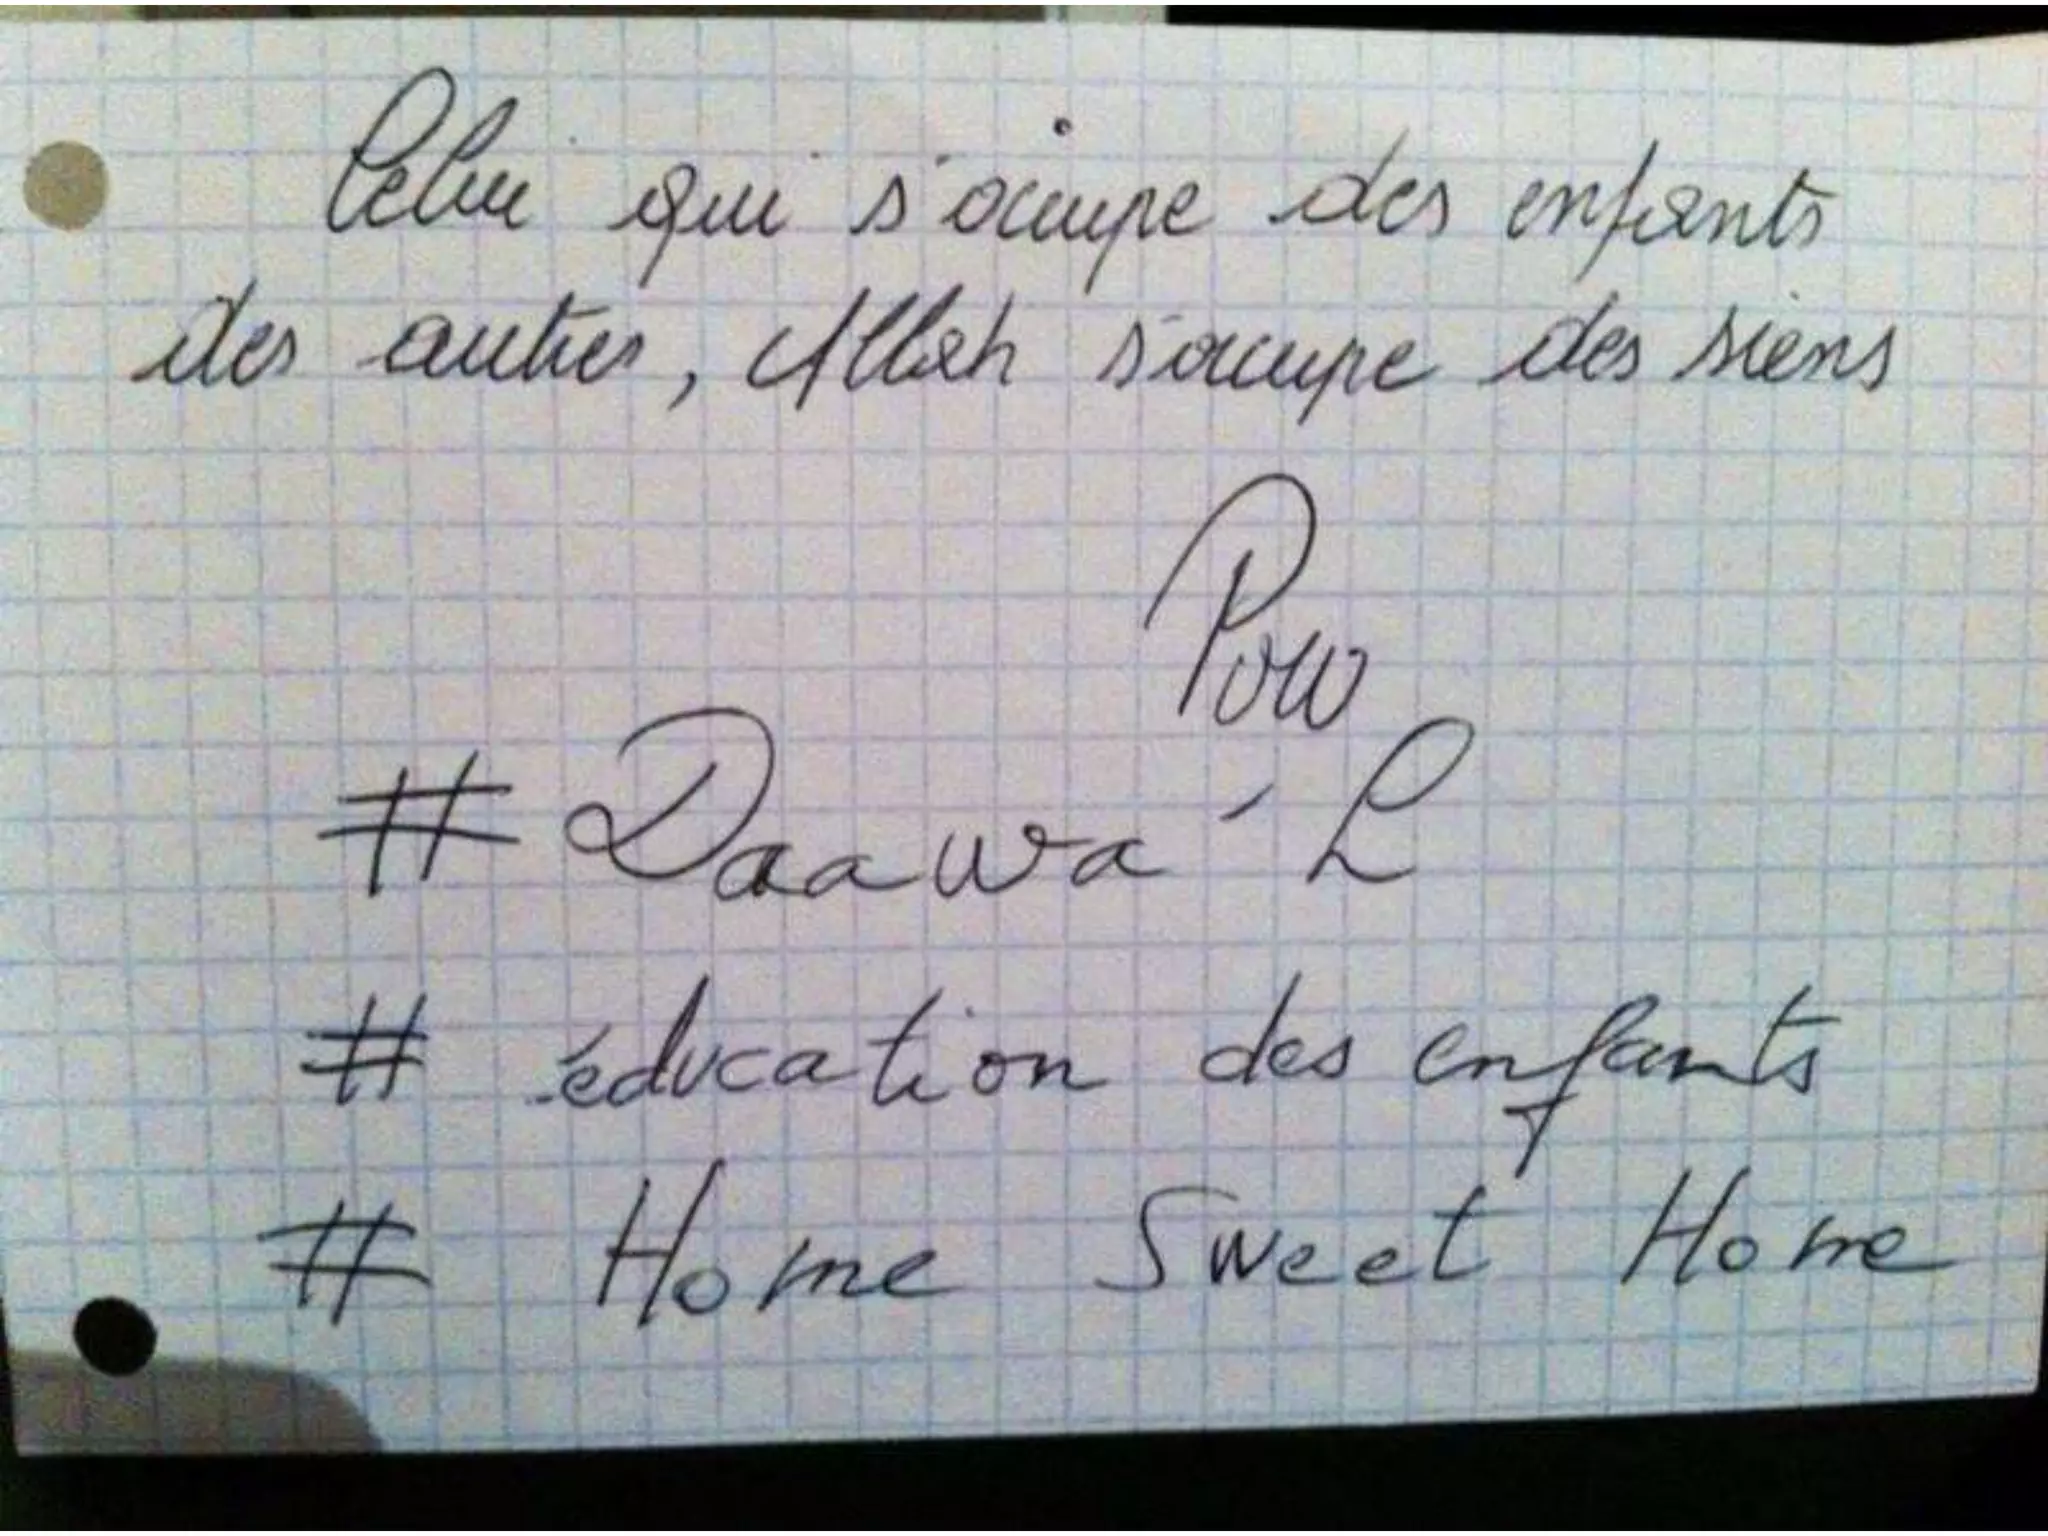 Celui qui s'occupe des enfants
des autres, Allah s'occupe des siens
Pow
# Daawa'L
# éducation des enfants
# Home Sweet Home